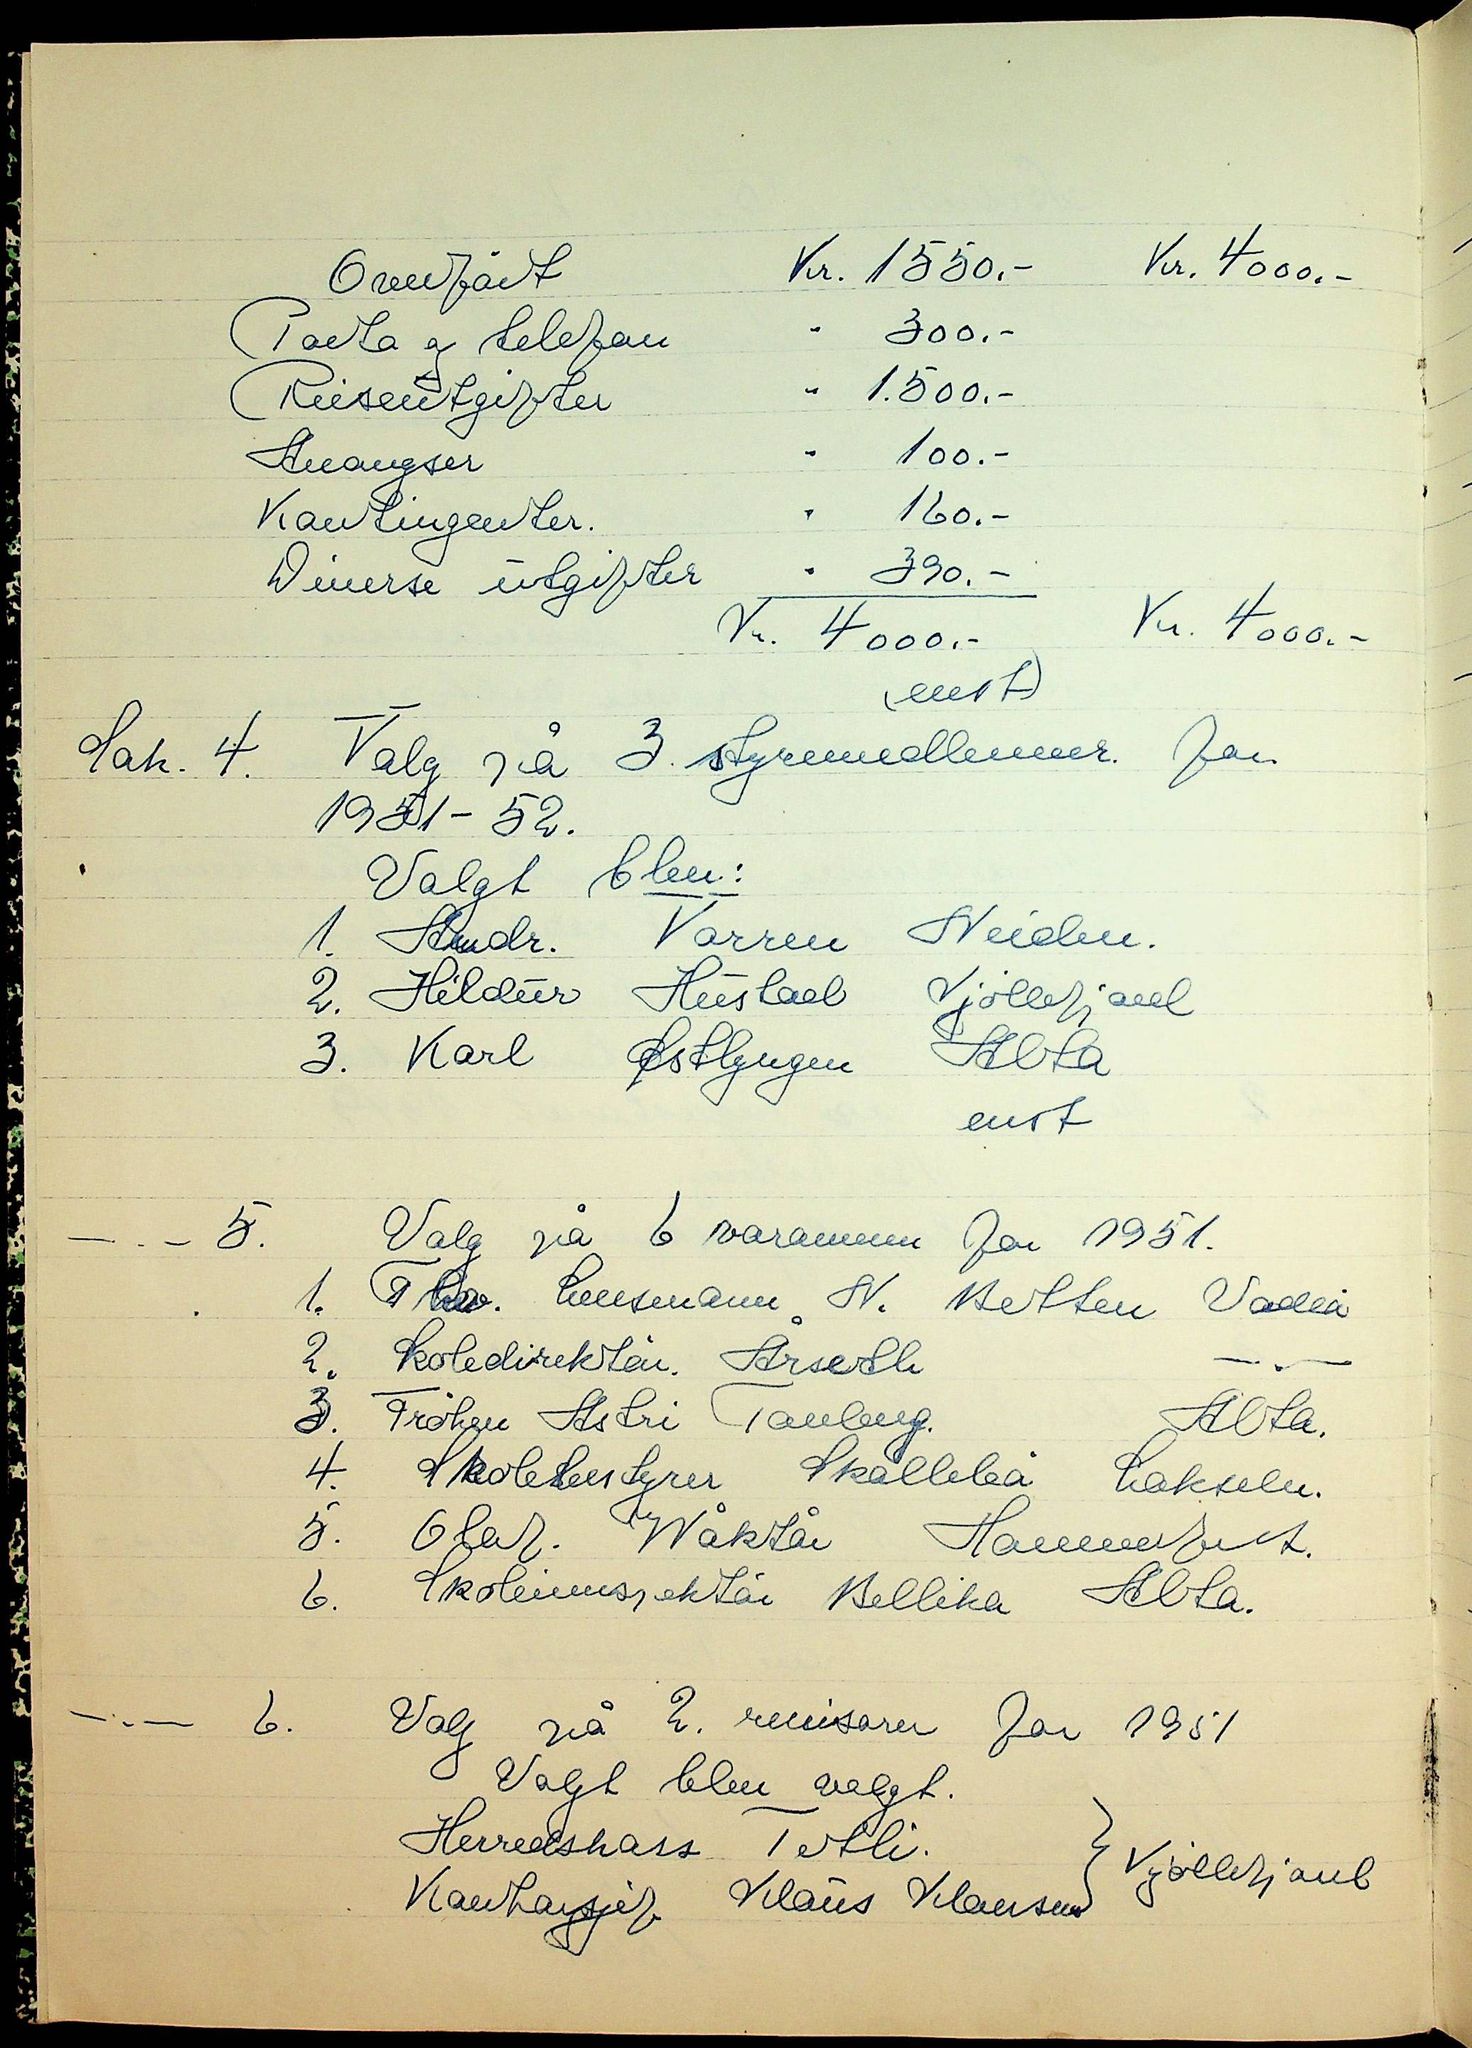 Overført Kr. 1550.- Kr. 4000.-
Porto og telefon " 300.-
Reiseutgifter " 1.500.-
Anonser " 100.-
Kontingenter. " 160.-
Diverse utgifter " 390.-
Kr. 4000.- Kr. 4000.-
(enst)
Sak. 4. Valg på 3. styremedlemmer for
1951-52.
Valgt blev:
1. Andr. Vorren Neiden.
2. Hildur Hustad Kjøllefjord
3. Karl Østlyngen Alta
enst
—.— 5. Valg på 6 varamenn for 1951.
1. Fhv. Lensmann N. Betten Vadsø
2. Skoledirektør. Årseth —.—
3. Frøken Astri Tonberg. Alta.
4. Skolebestyrer Skållebø Lakselv.
5. Olaf. Wåktør Hammerfest.
6. Skoleinspektør Bellika Alta.
—.— 6. Valg på 2. revisorer for 1951
Valgt blev valgt.
Herredskass Tetli.
Kontorsjef Klaus Klausen } Kjøllefjord